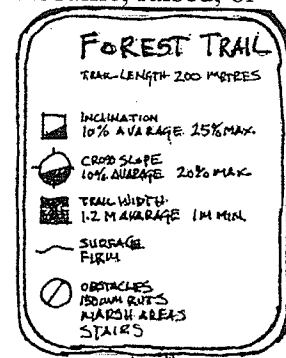 FOREST TRAIL
TRAIL LENGTH 200 METRES
INCLINATION
10% AVARAGE 25% MAX.
CROSS SLOPE
10% AVARAGE 20% MAX.
TRAIL WIDTH
1.2 M AVARAGE 1M MIN.
SURFACE
FIRM
OBSTACLES
150MM RUTS
MARSH AREAS
STAIRS